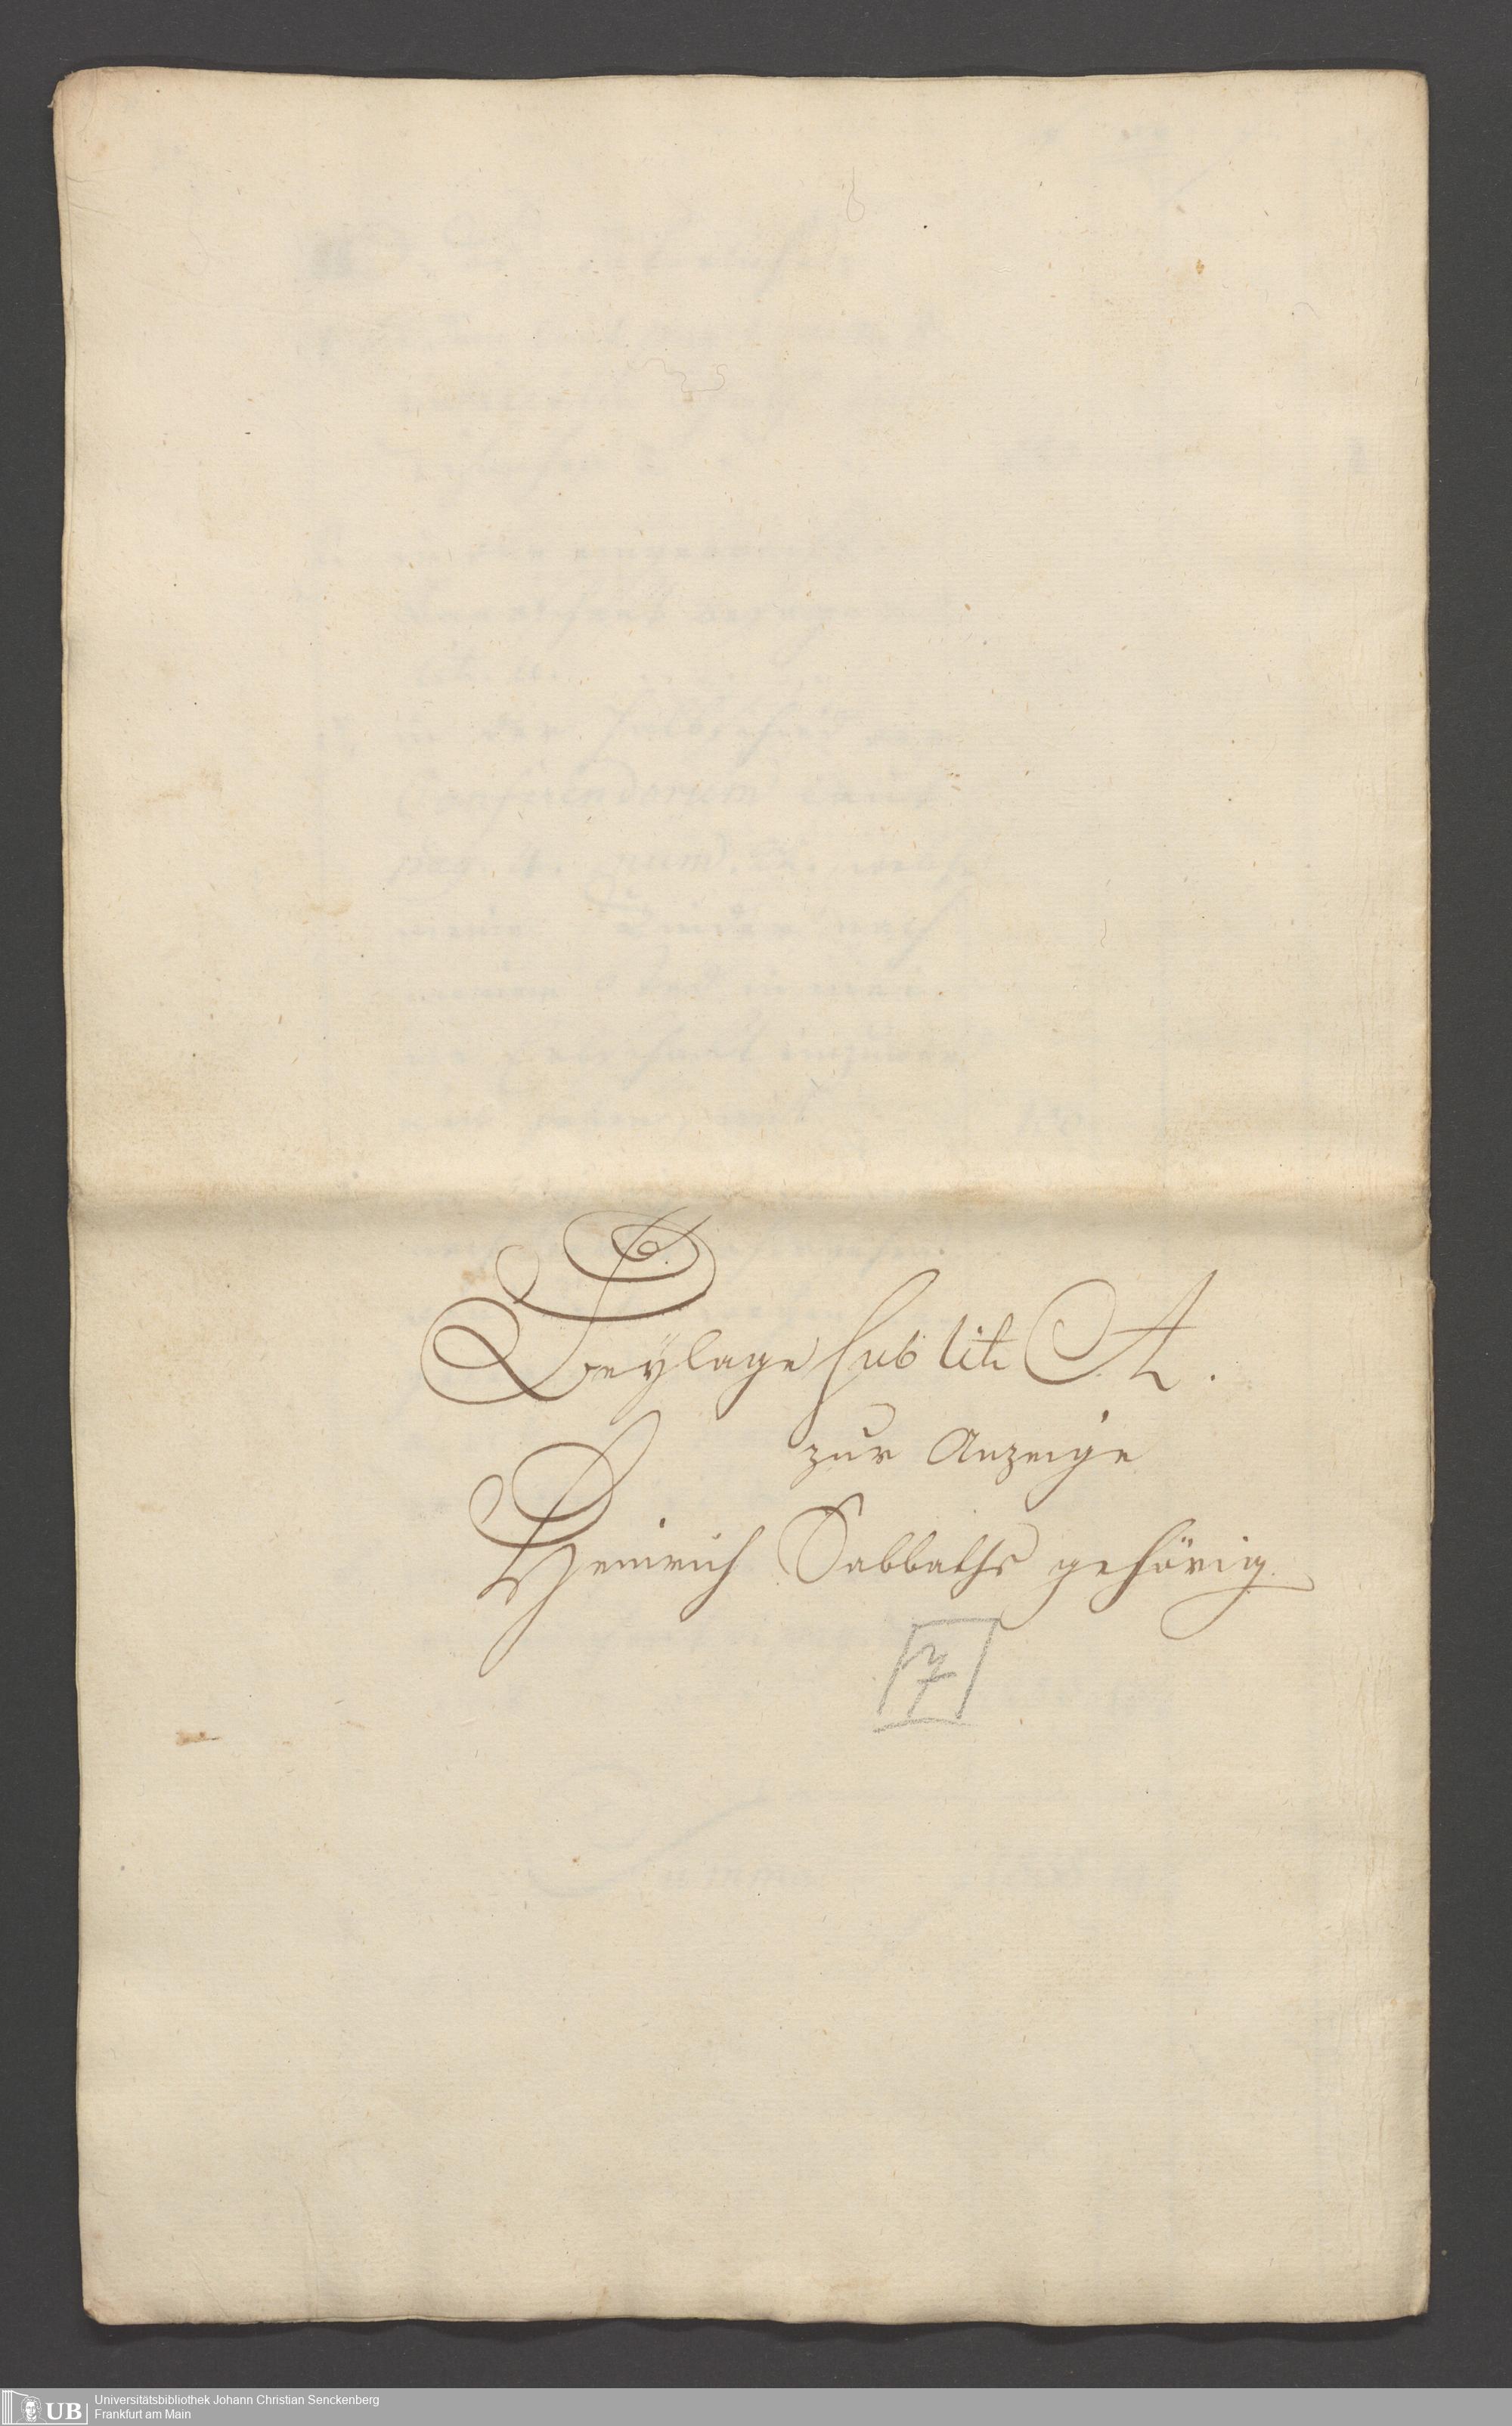 Beylage sub lit. A.
zur Anzeige
Heinrich Sabbaths gehörig
7
UB
Universitätsbibliothek Johann Christian Senckenberg
Frankfurt am Main